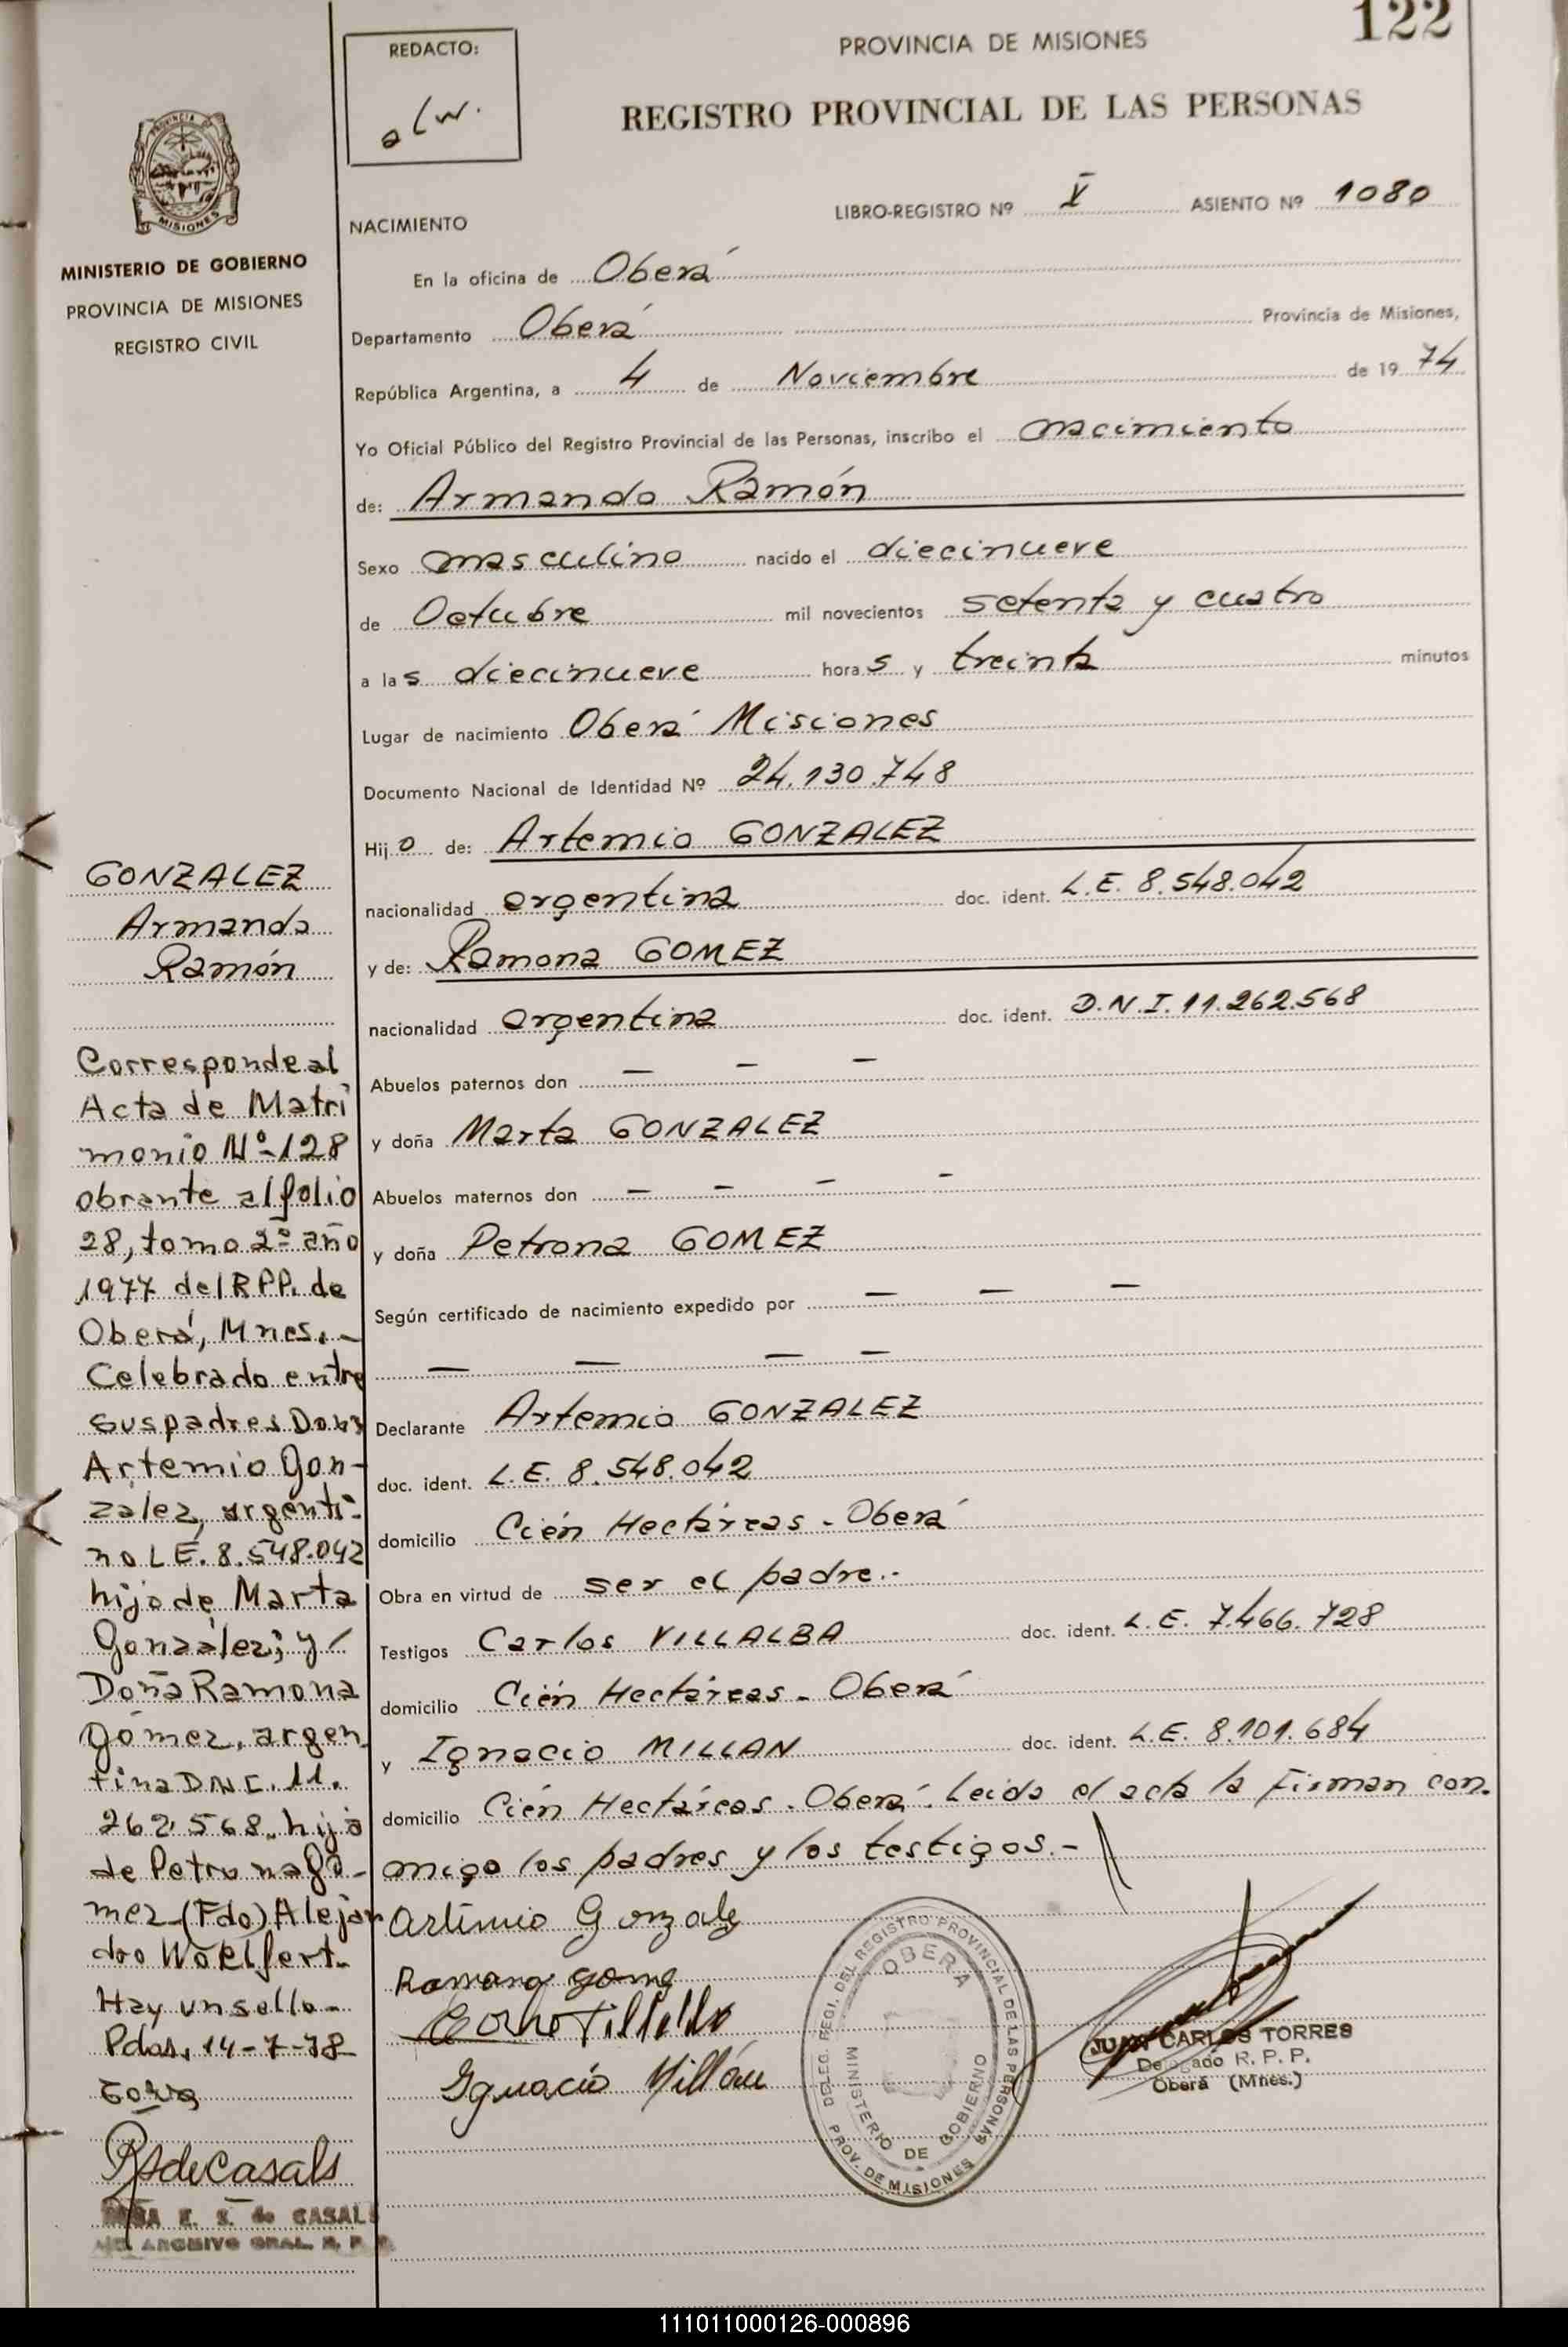 122
REDACTO:
alw.
PROVINCIA DE MISIONES
REGISTRO PROVINCIAL DE LAS PERSONAS
PROVINCIA DE
MISIONES
MINISTERIO DE GOBIERNO
PROVINCIA DE MISIONES
REGISTRO CIVIL
NACIMIENTO
LIBRO-REGISTRO Nº V ASIENTO Nº 1080
En la oficina de Oberá
Departamento Oberá Provincia de Misiones,
República Argentina, a 4 de Noviembre de 19 74
Yo Oficial Público del Registro Provincial de las Personas, inscribo el nacimiento
de: Armando Ramón
Sexo masculino nacido el diecinueve
de Octubre mil novecientos setenta y cuatro
a las diecinueve horas y treinta minutos
Lugar de nacimiento Oberá Misiones
Documento Nacional de Identidad Nº 24.130.748
Hijo de: Artemio GONZALEZ
nacionalidad argentina doc. ident. L.E. 8.548.042
y de: Ramona GOMEZ
nacionalidad argentina doc. ident. D.N.I. 11.262.568
Abuelos paternos don — — —
y doña Marta GONZALEZ
Abuelos maternos don — — — —
y doña Petrona GOMEZ
Según certificado de nacimiento expedido por — — —
— — — —
Declarante Artemio GONZALEZ
doc. ident. L.E. 8.548.042
domicilio Cién Hectáreas - Oberá
Obra en virtud de ser el padre.-
Testigos Carlos VILLALBA doc. ident. L.E. 7.466.728
domicilio Cién Hectáreas - Oberá
y Ignacio MILLAN doc. ident. L.E. 8.101.684
domicilio Cién Hectáreas - Oberá. Leida el acta la firman con.
migo los padres y los testigos.-
Artimio Gonzalez
Ramona gomez
Ignacio Millán
DELEG. REGI. DEL REGISTRO PROVINCIAL DE LAS PERSONAS
OBERA
MINISTERIO DE GOBIERNO
PROV. DE MISIONES
JUAN CARLOS TORRES
Delegado R. P. P.
Oberá (Mnes.)
GONZALEZ
Armando
Ramón
Corresponde al
Acta de Matri
monio Nº-128
obrante al folio
28, tomo 2º año
1977 del RPP. de
Oberá, Mnes.-
Celebrado entre
sus padres Don
Artemio Gon-
zalez, argenti-
no L.E. 8.548.042
hijo de Marta
González; y/
Doña Ramona
Gómez, argen
tina D.N.I. 11.
262.568. hija
de Petrona Gó-
mez_(Fdo) Alejan
dro Woelfert.
Hay un sello-
Pdas, 14-7-78
RSdeCasals
E. S. de CASALS
ARCHIVO GRAL. R. P. P.
111011000126-000896